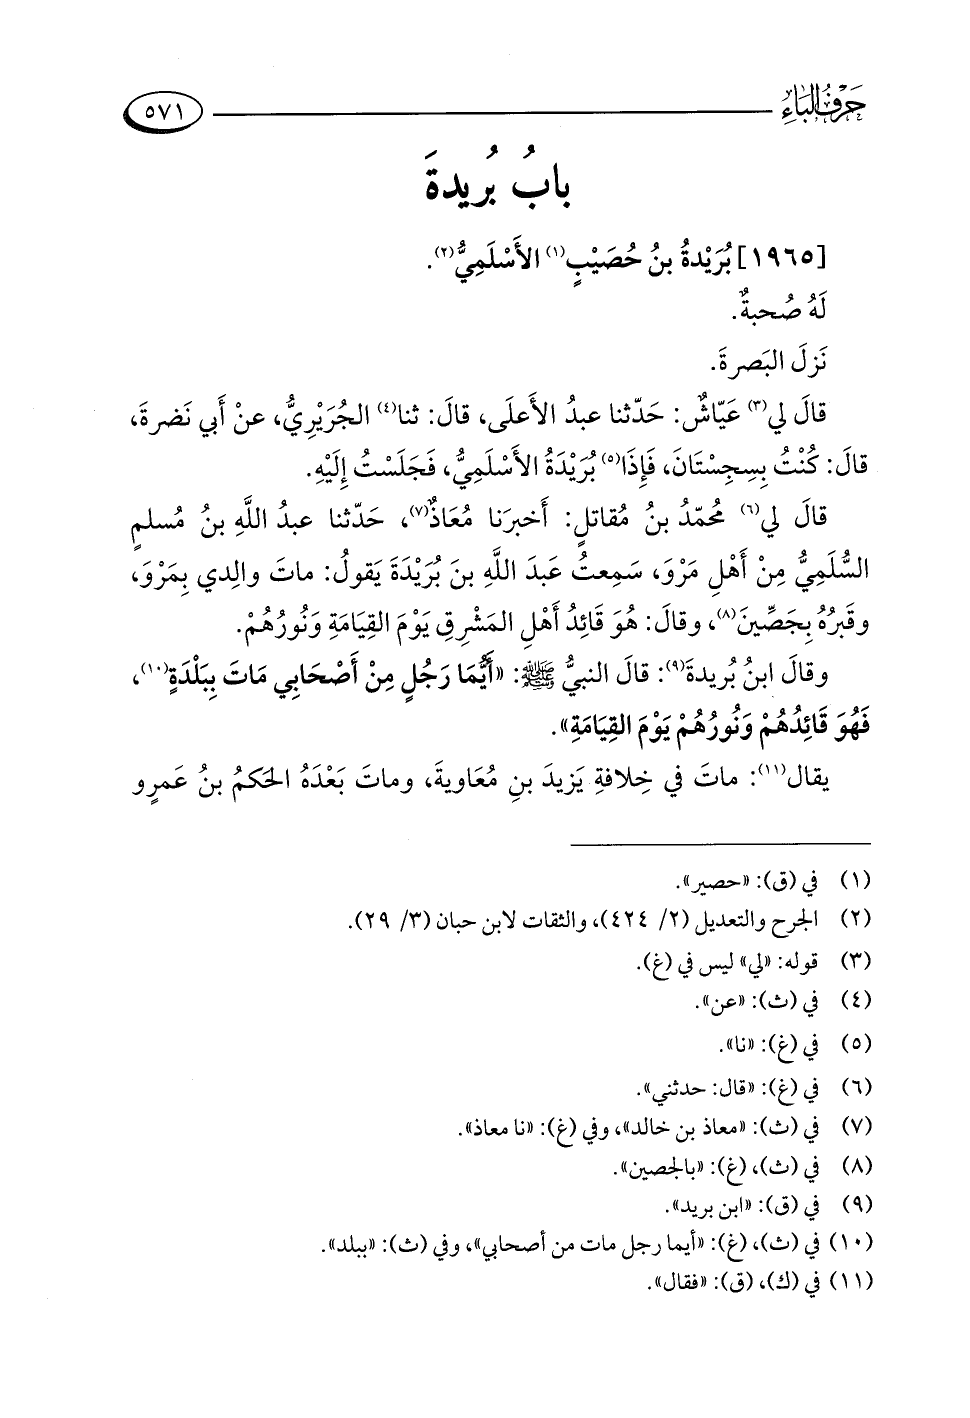 حَرْفُ الْبَاءِ ٥٧١
بابُ بُريدةَ
[١٩٦٥] بُرَيْدةُ بنُ حُصَيْبٍ(١) الأَسْلَمِيُّ(٢).
لَهُ صُحبةٌ.
نَزلَ البَصرةَ.
قالَ لي(٣) عَيّاشٌ: حَدّثنا عبدُ الأَعلَى، قالَ: ثنا(٤) الجُرَيْرِيُّ، عنْ أَبي نَضرةَ،
قالَ: كُنْتُ بِسِجِسْتَانَ، فَإِذَا(٥) بُرَيْدَةُ الأَسْلَمِيُّ، فَجَلَسْتُ إِلَيْهِ.
قالَ لي(٦) مُحمّدُ بنُ مُقاتلٍ: أَخبرَنا مُعَاذٌ(٧)، حَدّثنا عبدُ اللَّهِ بنُ مُسلمٍ
السُّلَمِيُّ مِنْ أَهْلِ مَرْوَ، سَمِعتُ عَبدَ اللَّهِ بنَ بُرَيْدَةَ يَقولُ: ماتَ والِدي بِمَرْوَ،
وقَبرُهُ بِجَصِّينَ(٨)، وقالَ: هُوَ قَائِدُ أَهْلِ المَشْرِقِ يَوْمَ القِيَامَةِ وَنُورُهُمْ.
وقالَ ابنُ بُريدةَ(٩): قالَ النبيُّ ﷺ: «أَيُّمَا رَجُلٍ مِنْ أَصْحَابِي مَاتَ بِبَلْدَةٍ(١٠)،
فَهُوَ قَائِدُهُمْ وَنُورُهُمْ يَوْمَ القِيَامَةِ».
يقال(١١): ماتَ في خِلافةِ يَزيدَ بنِ مُعَاويةَ، وماتَ بَعْدَهُ الحَكمُ بنُ عَمرٍو
(١) في (ق): «حصير».
(٢) الجرح والتعديل (٢/ ٤٢٤)، والثقات لابن حبان (٣/ ٢٩).
(٣) قوله: «لي» ليس في (غ).
(٤) في (ث): «عن».
(٥) في (غ): «نا».
(٦) في (غ): «قال: حدثني».
(٧) في (ث): «معاذ بن خالد»، وفي (غ): «نا معاذ».
(٨) في (ث)، (غ): «بالجصين».
(٩) في (ق): «ابن بريد».
(١٠) في (ث)، (غ): «أيما رجل مات من أصحابي»، وفي (ث): «ببلد».
(١١) في (ك)، (ق): «فقال».